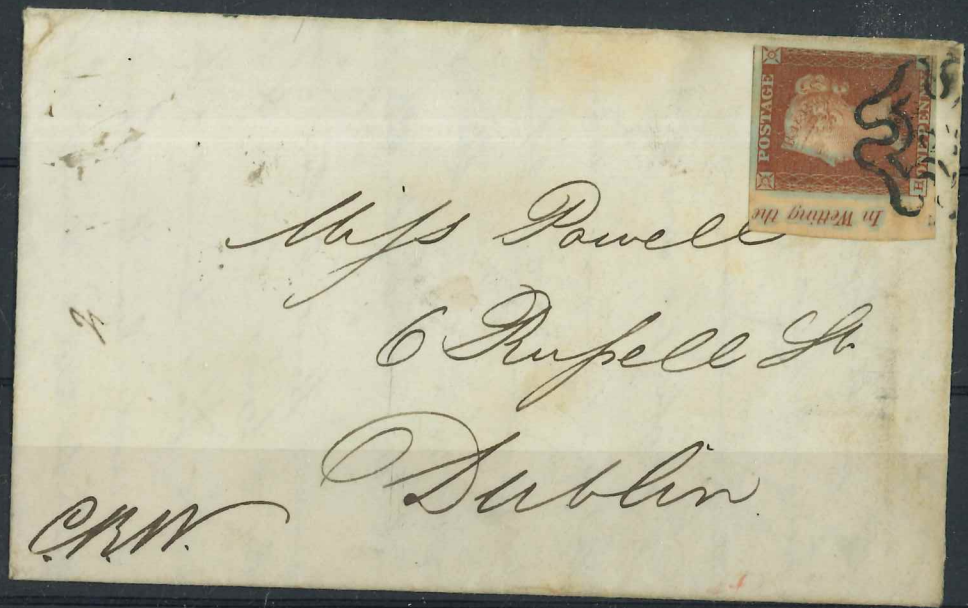 POSTAGE
ONE PENNY
H
In Wetting the
Miſs Powell
6 Ruſsell St.
Dublin
C.R.W.